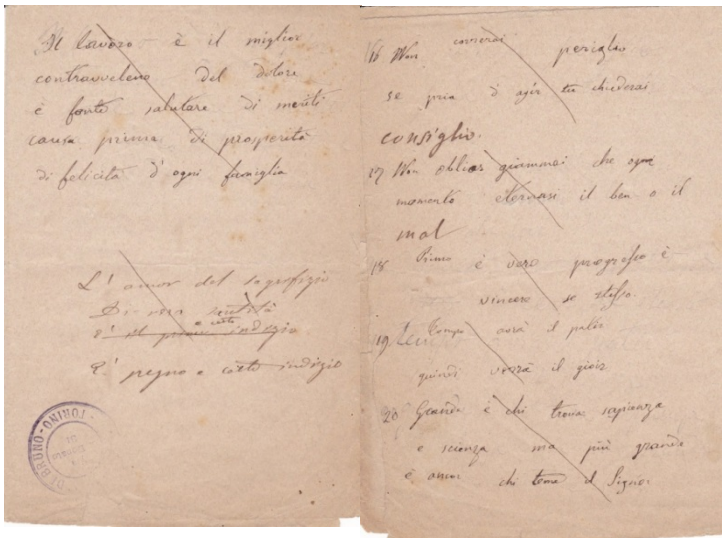 Il lavoro è il miglior
contravveleno del dolore
è fonte salutare di meriti
causa prima di prosperità
di felicità d'ogni famiglia
L'amor del sagrifizio
Di vera santità
e certo
È il primo indizio
E' pegno e certo indizio
DI BRUNO - TORINO -
16 Non correrai periglio
se pria d'agir tu chiederai
consiglio.
17 Non obliar giammai che ogni
momento eternasi il ben o il
mal
18 Primo è vero progresso è
vincere se stesso.
19 Tempo verrà il
quindi verrà il gioir
20 Grande è chi trova sapienza
e scienza ma più grande
è ancor chi teme il Signor